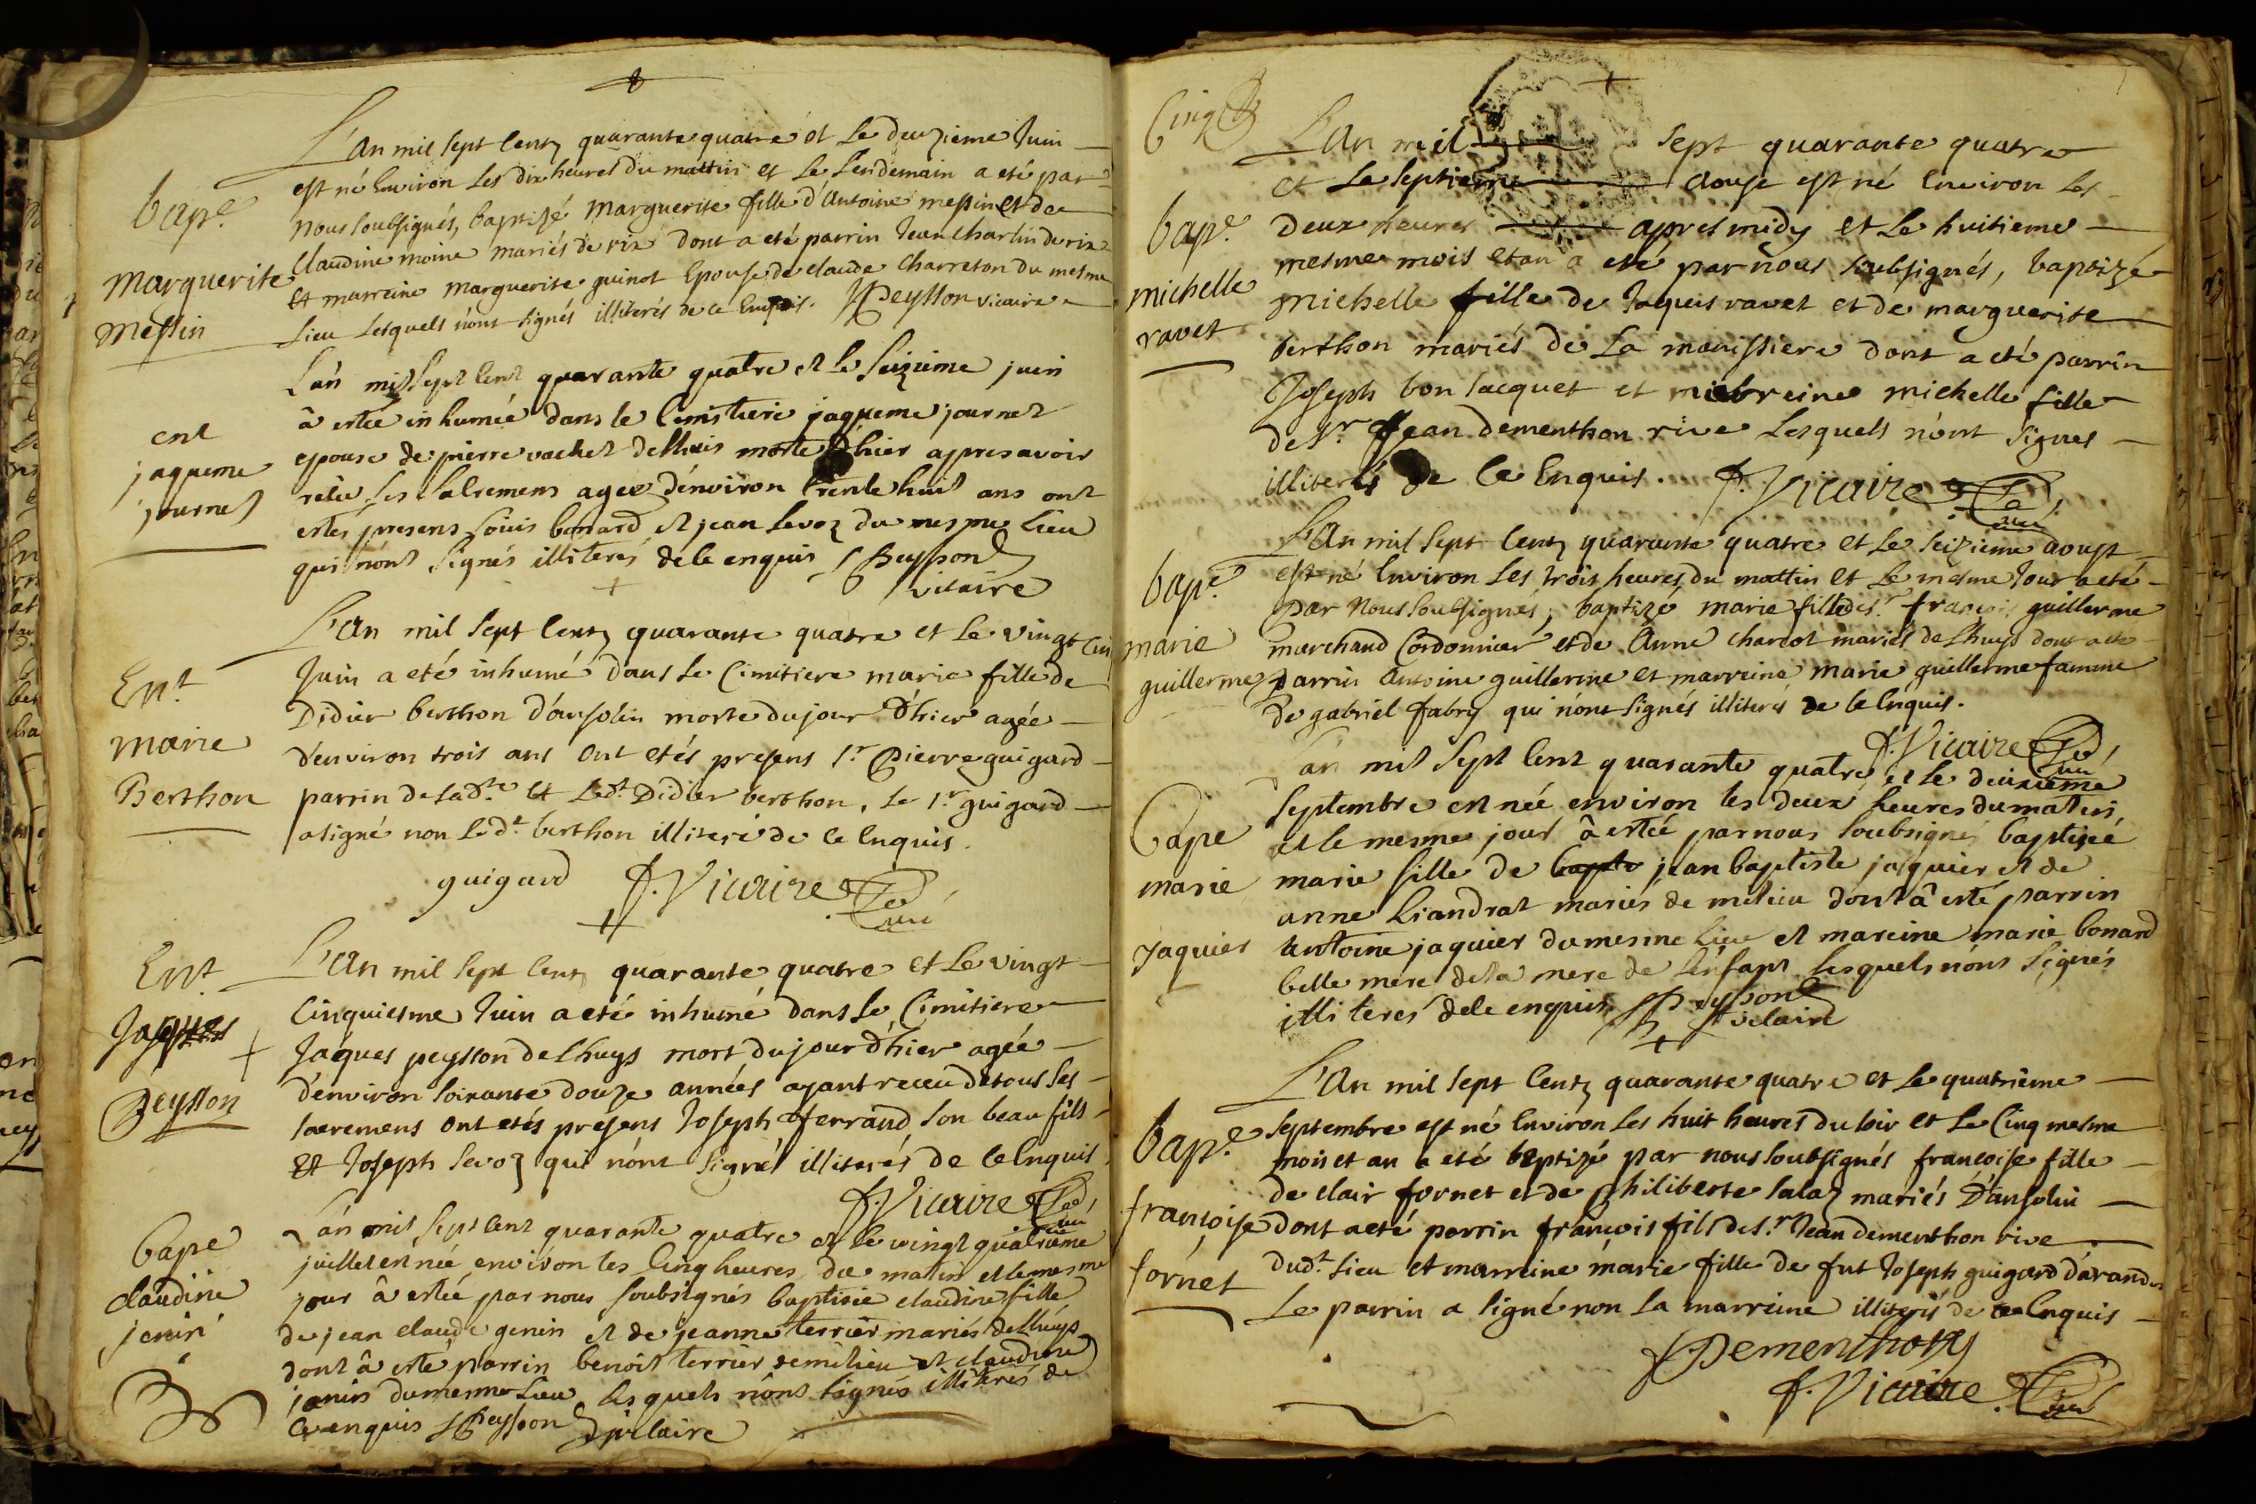 L'an mil sept centz quarante quatre et le deuzième Juin
est né Environ les dix heures du mattin et le lendemain a eté par
bap.e
nous soubsignés, baptizé marguerite fille d'antoine messin et de
claudine moine mariés de rix dont a eté parrin Jean charlin de rix
Marguerite
et marreine marguerite guinot Epouse de claude charreton du mesme
Messin
Lieu Lesquels n'ont signés illiterés de ce Enquis. Peysson vicaire
L'an mil sept cent quarante quatre et le seizieme juin
â estée inhumée dans le Cemitiere jaqueme journet
ent
epouse de pierre vachet de lhuis morte d'hier appres avoir
jaqueme
receu ses sacremens agée d'environ trente huit ans ont
journet
estés presens Louis bonard et jean sevoz du mesme lieu
qui n'ont signés illiterés de ce enquis Peysson
vicaire
L'an mil sept centz quarante quatre et le vingt cin
Juin a eté inhumé dans le Cimitiere marie fille de
Ent
Didier berthon d'ansolin morte du jour d'hier agée
Marie
d'environ trois ans ont etés presens s.r Pierre guigard
Berthon
parrin de lad.te et led.t Didier berthon, le s.r guigard
a signé non led.t berthon illiteré de ce Enquis.
guigard J. Vicaire Curé
Ent
L'an mil sept centz quarante quatre et le vingt
Cinquiesme Juin a eté inhumé dans le Cimitiere
Jaques
Jaques peysson de Lhuys mort du jour d'hier agée
d'environ soixante douze années ayant receu de tous ses
Peysson
sacremens ont etés presens Joseph ferrand son beau fils
Et Joseph sevoz qui n'ont signés illiterés de ce Enquis
J. Vicaire Curé
L'an mil sept cent quarante quatre et le vingt quatrieme
bape
juillet est née environ les cinq heures du matin et le mesme
claudine
jour â estée par nous soubsignés baptisée claudine fille
jenin
de jean claude genin et de jeanne terrier mariés de lhuys
dont â esté parrin benoit terrier de milieu et claudine
janin du mesme Lieu lesquels n'ont signés illiterés de
ce enquis Peysson vicaire
Cinq
L'an mil sept quarante quatre
et le septieme aouse est né Environ les
bap.e
deux heures apres midy et le huitieme
mesme mois et an a eté par nous soubsignés, baptizé
michelle
michelle fille de Jaques ravet et de marguerite
ravet
berthon mariés de la manissiere dont a eté parrin
Joseph bon Jacquet et marreine michelle fille
de s.r Jean dementhon rive Lesquels n'ont signes
illiterés de ce Enquis. J. Vicaire Curé
L'an mil sept centz quarante quatre et le seizieme aoust
bap.e
est né Environ les trois heures du mattin et le mesme Jour a eté
par nous soubsignés, baptizé marie fille de s.r françois guillerme
marie
marchand Cordonnier et de Anne charcot mariés de Lhuys dont a eté
guillerme
parrin Antoine guillerme et marreine marie guillerme famme
de gabriel fabry qui n'ont signés illiterés de ce Enquis.
J. Vicaire Curé
L'an mil sept cent quarante quatre et le deuxieme
septembre est née environ les deux heures du matin
bape
et le mesme jour â estée par nous soubsignes baptisée
marie
marie fille de jean baptiste jaquier et de
anne Liandrat mariés de milieu dont â esté parrin
Jaquier
antoine jaquier du mesme Lieu et mareine marie bonard
belle mere de la mere de l'enfant lesquels n'ont signés
illiterés de ce enquis Peysson
vicaire
L'an mil sept centz quarante quatre et le quatrieme
septembre est né Environ les huit heures du soir et le Cinq mesme
bap.e
mois et an a eté baptizé par nous soubsignés francoise fille
de clair fornet et de Philiberte salaz mariés D'ansolin
françoise
dont a eté parrin françois fils de s.r Jean dementhon rive
dud.t Lieu et marreine marie fille de fut Joseph guigard d'arandon
fornet
Le parrin a signé non la marreine illiterée de ce Enquis
Dementhon
J. Vicaire Curé